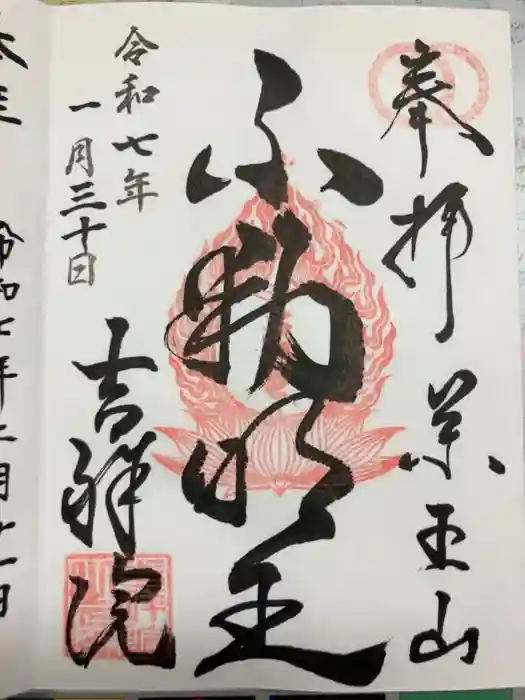 奉拝
薬王山
不動明王
令和七年
一月三十日
吉祥院
令和七年二月十一日